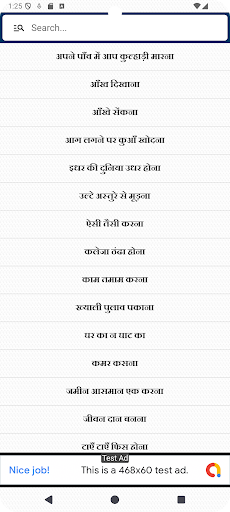 1:25
Search...
अपने पाँव में आप कुल्हाड़ी मारना
आँख दिखाना
आँखे सेंकना
आग लगने पर कुआँ खोदना
इधर की दुनिया उधर होना
उल्टे अस्तुरे से मूड़ना
ऐसी तैसी करना
कलेजा ठंढा होना
काम तमाम करना
ख्याली पुलाव पकाना
घर का न घाट का
कमर कसना
जमीन आसमान एक करना
जीवन दान बनना
टाएँ टाएँ फिस होना
Test Ad
Nice job!
This is a 468x60 test ad.